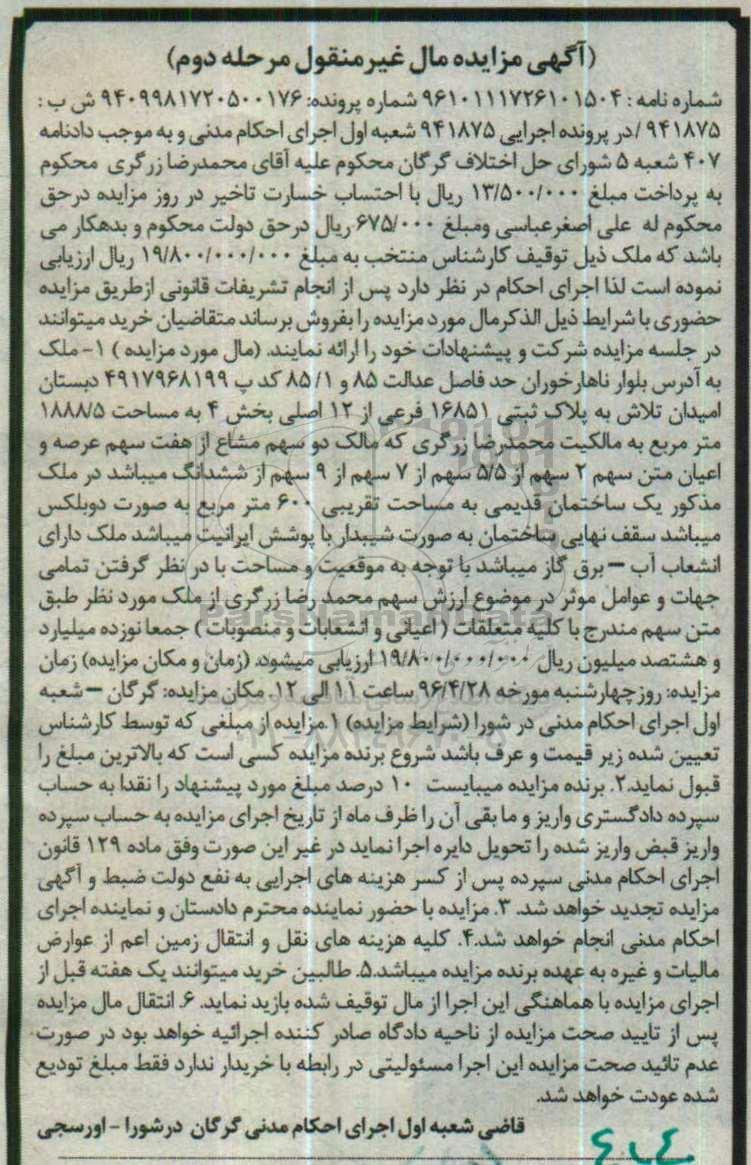 (آگهی مزایده مال غیرمنقول مرحله دوم)
شماره نامه : ۹۶۱۰۱۱۱۷۲۶۱۰۱۵۰۴ شماره پرونده: ۹۴۰۹۹۸۱۷۲۰۵۰۰۱۷۶ ش ب :
۹۴۱۸۷۵ /در پرونده اجرایی ۹۴۱۸۷۵ شعبه اول اجرای احکام مدنی و به موجب دادنامه
۴۰۷ شعبه ۵ شورای حل اختلاف گرگان محکوم علیه آقای محمدرضا زرگری محکوم
به پرداخت مبلغ ۱۳/۵۰۰/۰۰۰ ریال با احتساب خسارت تاخیر در روز مزایده درحق
محکوم له علی اصغرعباسی ومبلغ ۶۷۵/۰۰۰ ریال درحق دولت محکوم و بدهکار می
باشد که ملک ذیل توقیف کارشناس منتخب به مبلغ ۱۹/۸۰۰/۰۰۰/۰۰۰ ریال ارزیابی
نموده است لذا اجرای احکام در نظر دارد پس از انجام تشریفات قانونی ازطریق مزایده
حضوری با شرایط ذیل الذکرمال مورد مزایده را بفروش برساند متقاضیان خرید میتوانند
در جلسه مزایده شرکت و پیشنهادات خود را ارائه نمایند. (مال مورد مزایده ) ۱- ملک
به آدرس بلوار ناهارخوران حد فاصل عدالت ۸۵ و ۸۵/۱ کد پ ۴۹۱۷۹۶۸۱۹۹ دبستان
امیدان تلاش به پلاک ثبتی ۱۶۸۵۱ فرعی از ۱۲ اصلی بخش ۴ به مساحت ۱۸۸۸/۵
متر مربع به مالکیت محمدرضا زرگری که مالک دو سهم مشاع از هفت سهم عرصه و
اعیان متن سهم ۲ سهم از ۵/۵ سهم از ۷ سهم از ۹ سهم از ششدانگ میباشد در ملک
مذکور یک ساختمان قدیمی به مساحت تقریبی ۶۰۰ متر مربع به صورت دوبلکس
میباشد سقف نهایی ساختمان به صورت شیبدار با پوشش ایرانیت میباشد ملک دارای
انشعاب آب – برق گاز میباشد با توجه به موقعیت و مساحت با در نظر گرفتن تمامی
جهات و عوامل موثر در موضوع ارزش سهم محمد رضا زرگری از ملک مورد نظر طبق
متن سهم مندرج با کلیه متعلقات ( اعیانی و انشعابات و منصوبات ) جمعا نوزده میلیارد
و هشتصد میلیون ریال ۱۹/۸۰۰/۰۰۰/۰۰۰ ارزیابی میشود. (زمان و مکان مزایده) زمان
مزایده: روزچهارشنبه مورخه ۹۶/۴/۲۸ ساعت ۱۱ الی ۱۲. مکان مزایده: گرگان – شعبه
اول اجرای احکام مدنی در شورا (شرایط مزایده) ۱.مزایده از مبلغی که توسط کارشناس
تعیین شده زیر قیمت و عرف باشد شروع برنده مزایده کسی است که بالاترین مبلغ را
قبول نماید.۲. برنده مزایده میبایست ۱۰ درصد مبلغ مورد پیشنهاد را نقدا به حساب
سپرده دادگستری واریز و ما بقی آن را ظرف ماه از تاریخ اجرای مزایده به حساب سپرده
واریز قبض واریز شده را تحویل دایره اجرا نماید در غیر این صورت وفق ماده ۱۲۹ قانون
اجرای احکام مدنی سپرده پس از کسر هزینه های اجرایی به نفع دولت ضبط و آگهی
مزایده تجدید خواهد شد. ۳. مزایده با حضور نماینده محترم دادستان و نماینده اجرای
احکام مدنی انجام خواهد شد.۴. کلیه هزینه های نقل و انتقال زمین اعم از عوارض
مالیات و غیره به عهده برنده مزایده میباشد.۵. طالبین خرید میتوانند یک هفته قبل از
اجرای مزایده با هماهنگی این اجرا از مال توقیف شده بازید نماید. ۶. انتقال مال مزایده
پس از تایید صحت مزایده از ناحیه دادگاه صادر کننده اجرائیه خواهد بود در صورت
عدم تائید صحت مزایده این اجرا مسئولیتی در رابطه با خریدار ندارد فقط مبلغ تودیع
شده عودت خواهد شد.
قاضی شعبه اول اجرای احکام مدنی گرگان درشورا – اورسجی
ParsNamadData